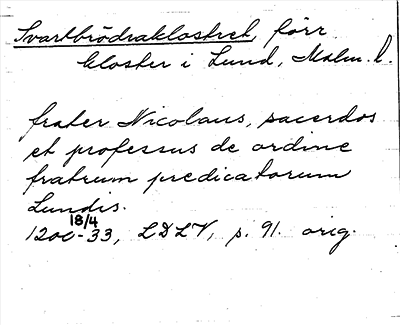 Svartbrödraklostret, förr
kloster i Lund, Malm. l.
frater Nicolaus, sacerdos
et professus de ordine
fratrum predicatorum
Lundis.
18/4
1200-33, LDLV, p. 91. orig.